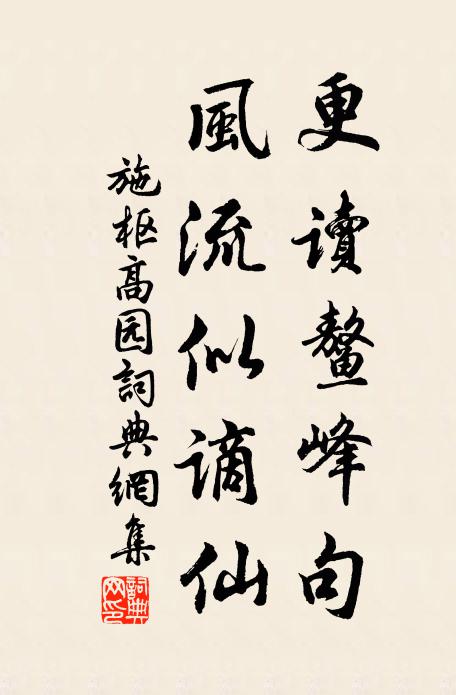 更讀鼇峰句
風流似謫仙
施枢高园詞典網集
詞典网印